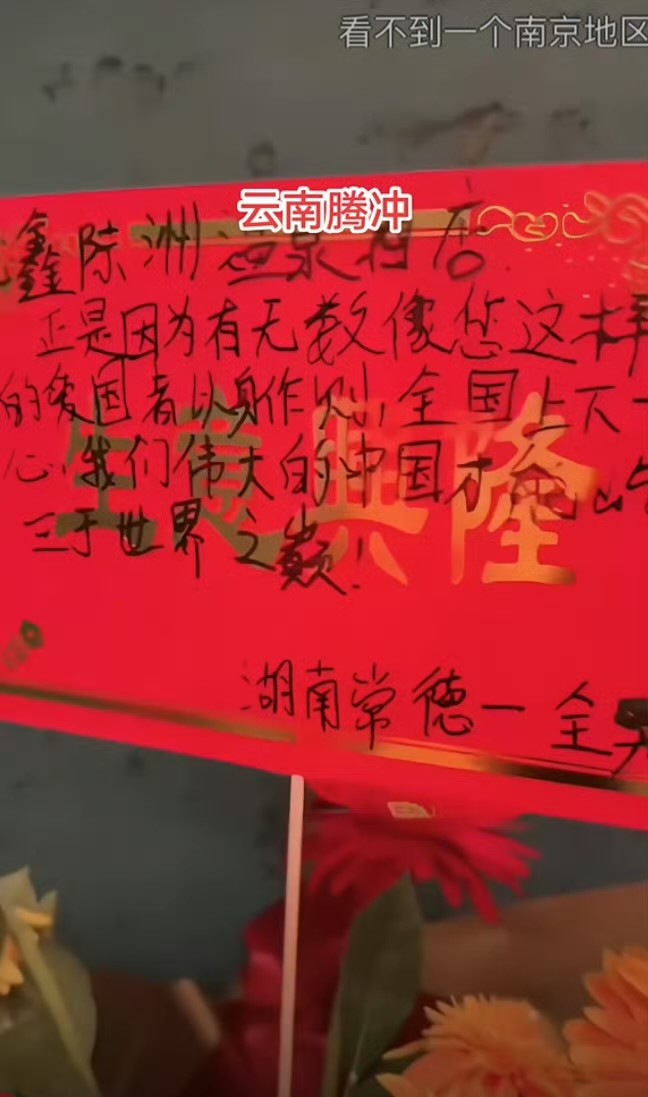 看不到一个南京地区
云南腾冲
鑫陈洲温泉酒店
正是因为有无数像您这样
的爱国者以身作则,全国上下一
心,我们伟大的中国才能屹
立于世界之巅!
生意興隆
湖南常德一全